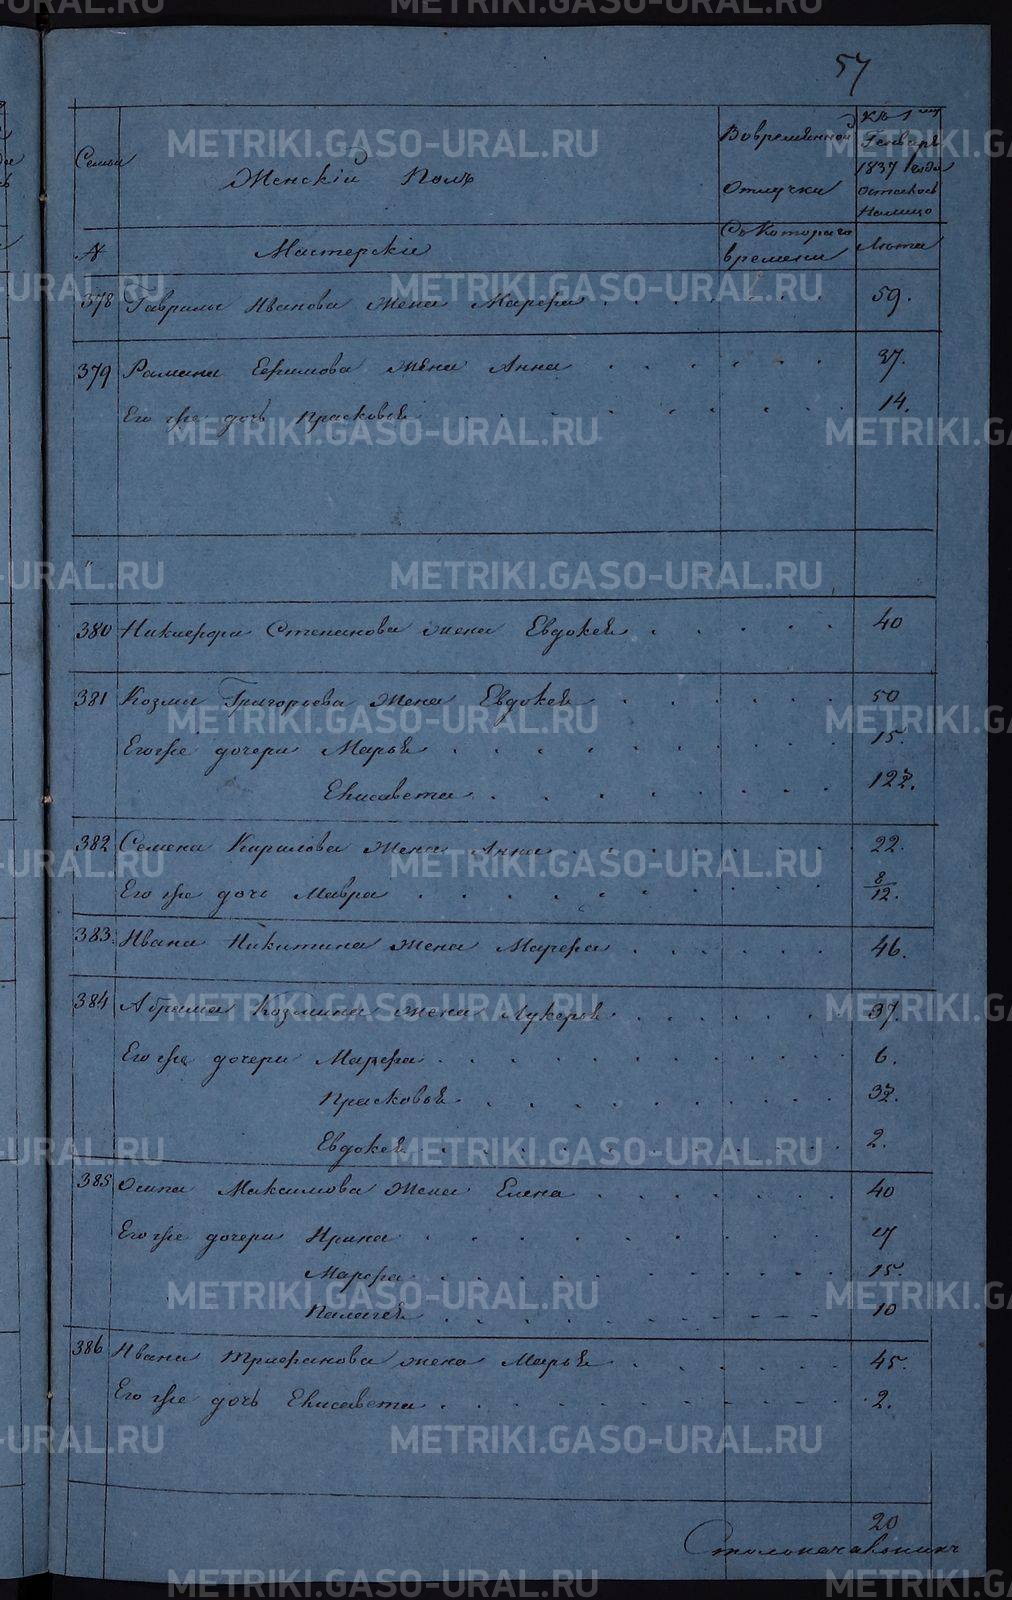 57
Семьи
Женскій Полъ
Во временной
Отлучки
Къ 1му
Генваря
1837 года
осталось
Налицо
№
Мастерскіе
Съ Котораго
времени
Лѣта
378 Гаврилы Иванова Жена Марѳа 59.
379 Романа Ефимова Жена Анна 37.
Его же дочь Прасковья 14.
"
380 Никифора Степанова жена Евдокея 40
381 Козмы Григорьева Жена Евдокея 50
Его же дочери Марья 15.
Елисавета
382 Семена Карилова Жена Анна 22.
Его же дочь Мавра 8/12.
383. Ивана Никитина Жена Марѳа 46.
384 Абрама Козмина Жена Лукерья 37.
Его же дочери Марѳа 6.
Прасковья
Евдокея 2.
385 Осипа Максимова Жена Елена 40
Его же дочери Ирина
Марѳа 15.
Палагея 10
386 Ивана Трифанова жена Марья 45.
Его же дочь Елисавета 2.
20
Столоначальникъ
METRIKI.GASO-URAL.RU